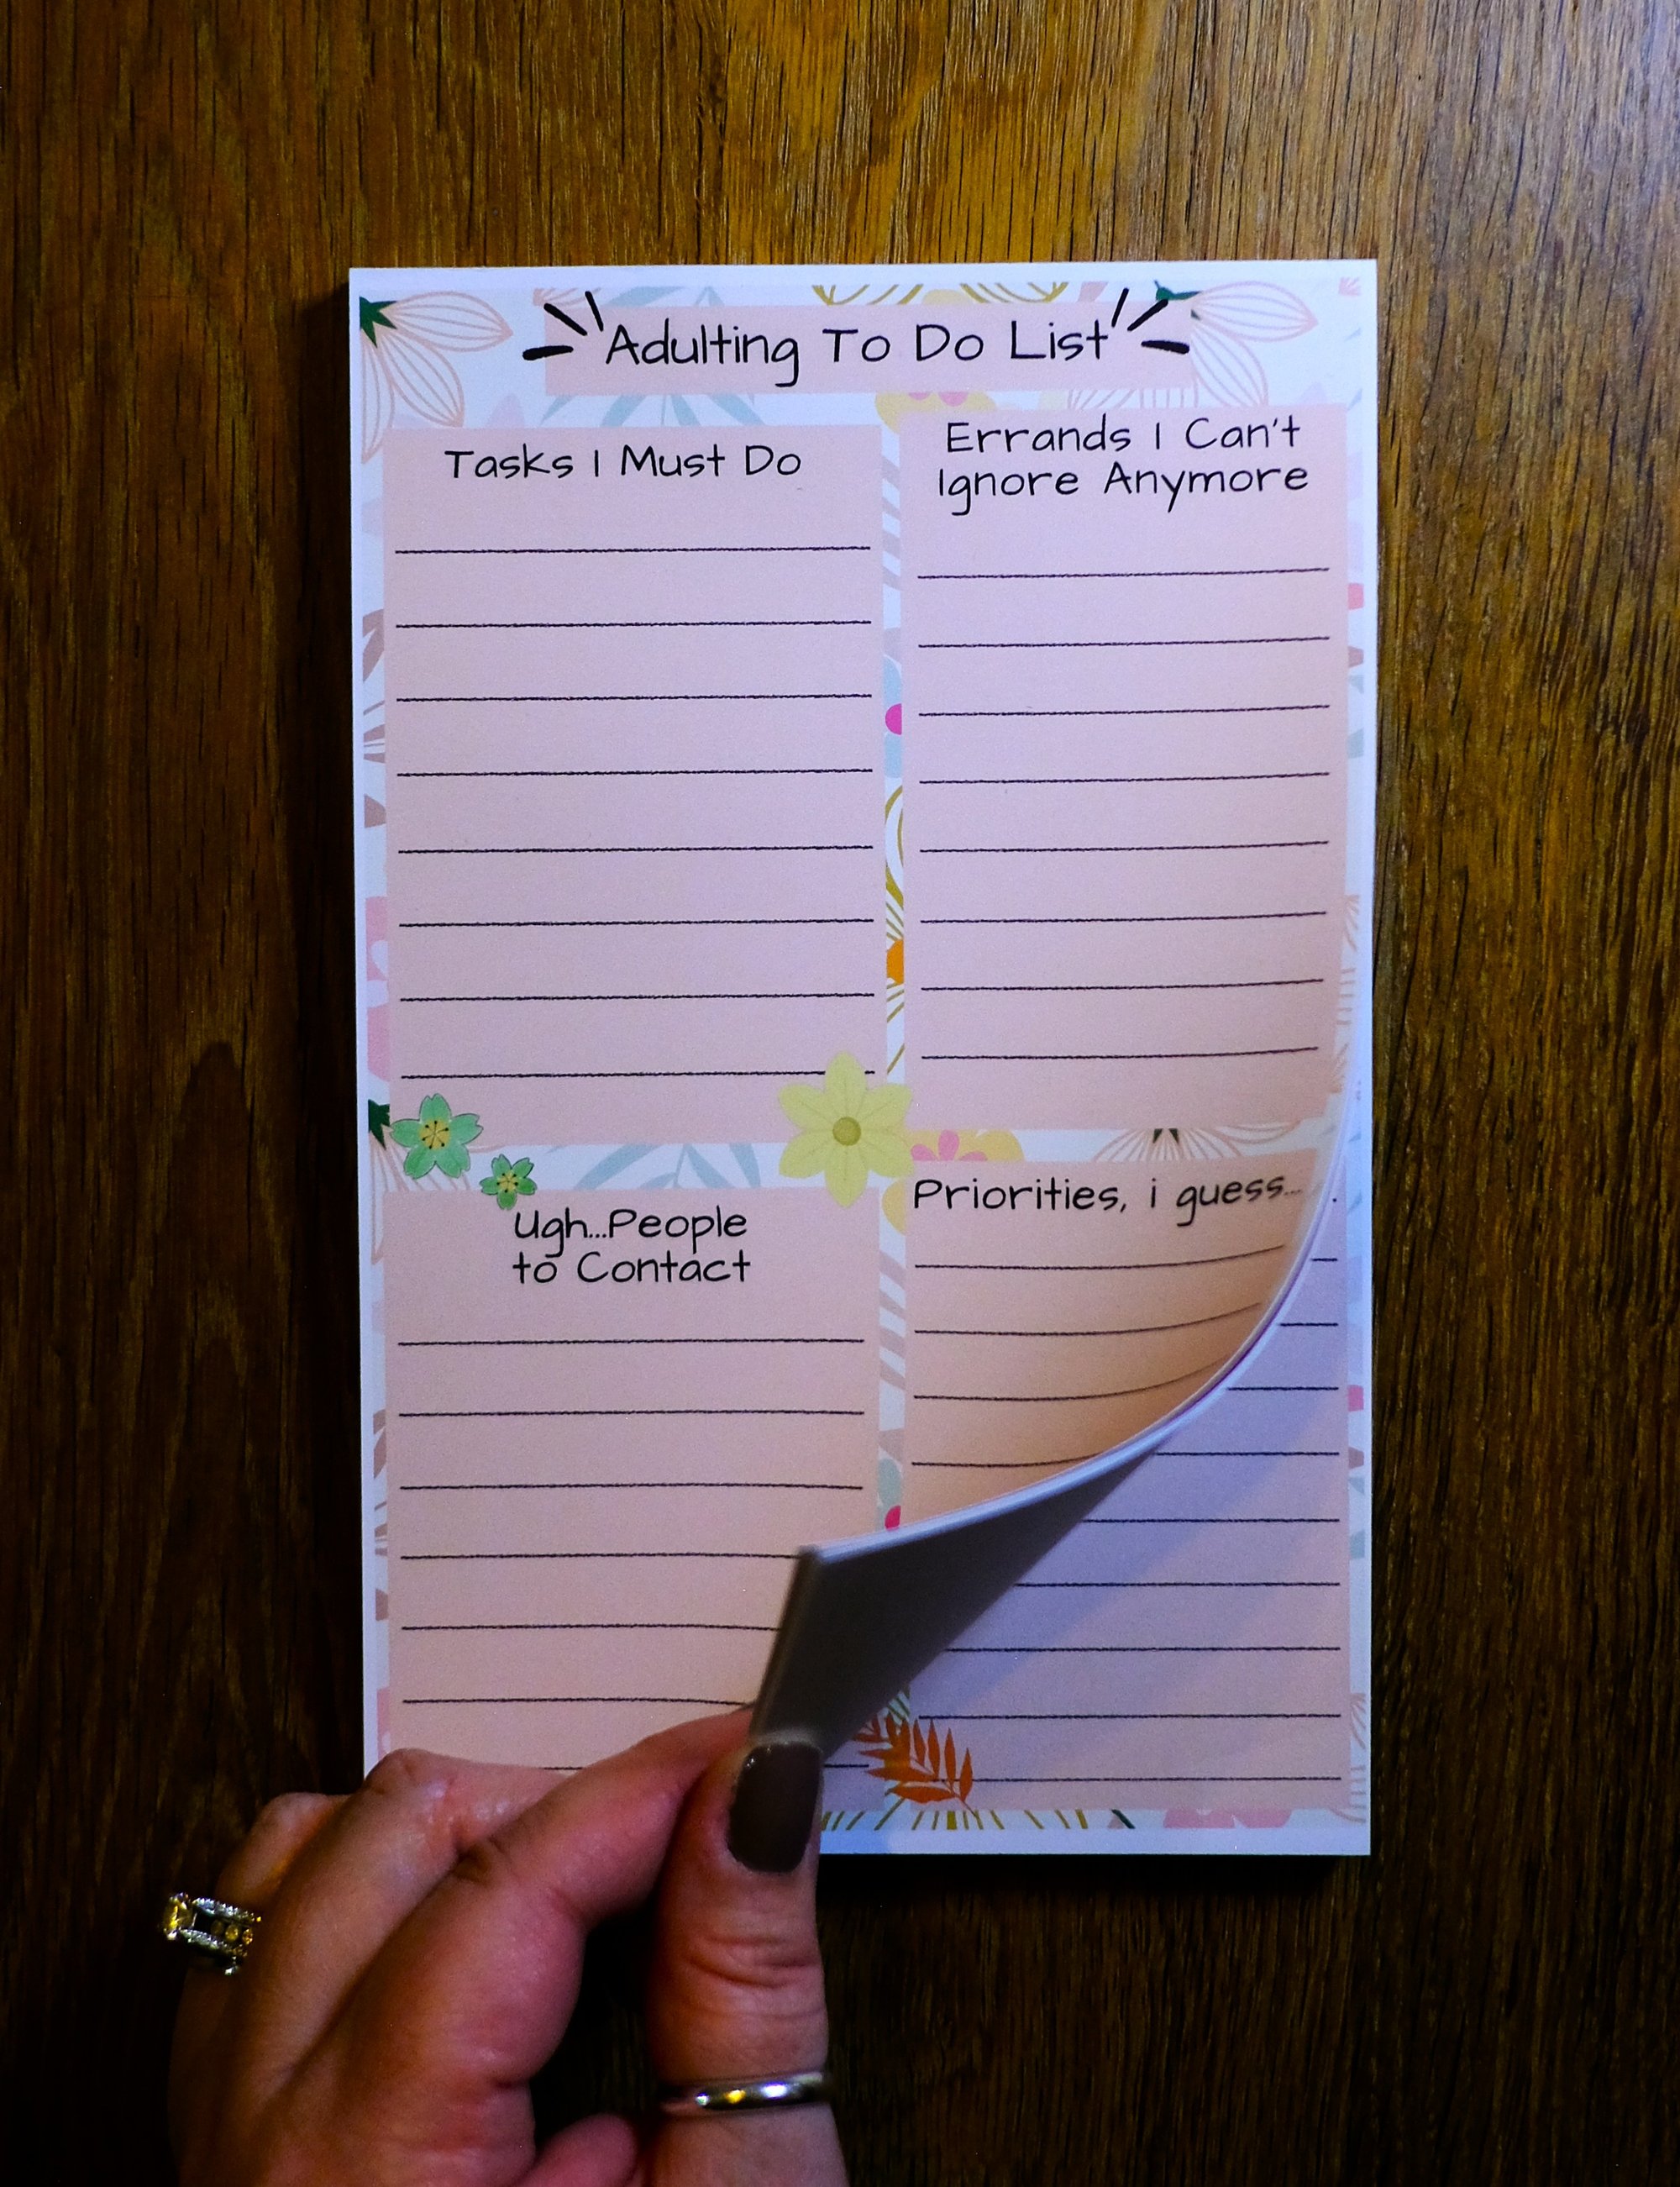 Adulting To Do List
Tasks I Must Do
Errands I Can't
Ignore Anymore
Ugh...People
to Contact
Priorities, i guess...